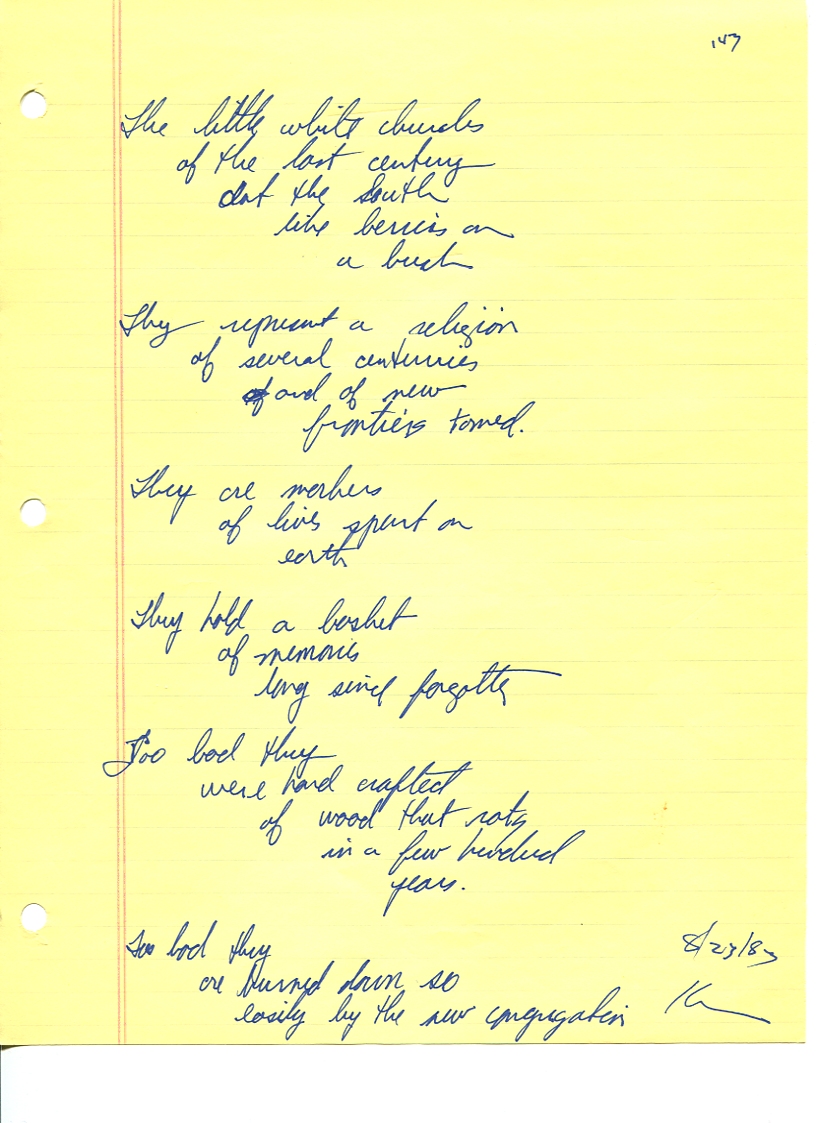 143
The little white churches
of the last century
dot the South
like berries on
a bush
They represent a religion
of several centurries
and of new
frontiers tamed.
They are markers
of lives spent on
earth
They hold a basket
of memories
long since forgotten
Too bad they
were hand crafted
of wood that rots
in a few hundred
years.
Too bad they
are burned down so
easily by the new congregation
8/23/83